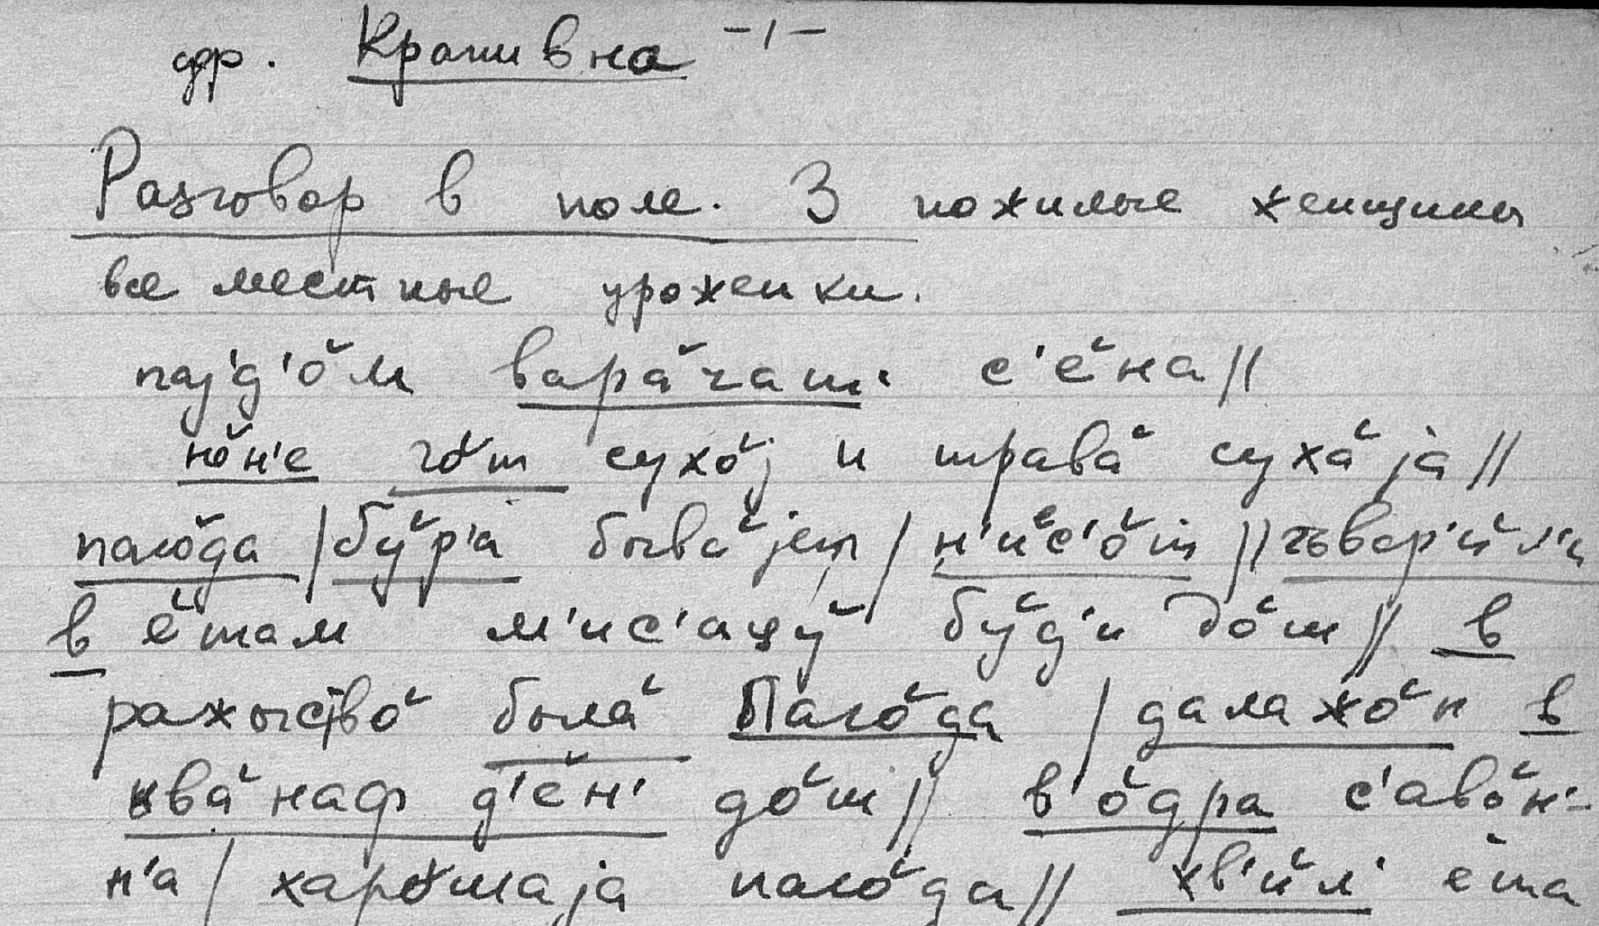 др. Крапивна -1-
Разговор в поле. 3 пожилые женщины
все местные уроженки.
пај'д'о́м вара́чат' с'е́на//
но́н'е го́т сухо́ј и трава́ суха́ја//
паго́да / бу́р'а быва́јет / н'ис'о́т // гъвар'и́л'и
в е́там м'ис'ацу́ бу́д'и до́ш // в
ражыство́ была́ паго́да / далажо́н в
ива́наф д'е́н' до́ш // в'о́дра с'аво́н'-
н'а / харо́шаја паго́да // хв'и́л' е́та